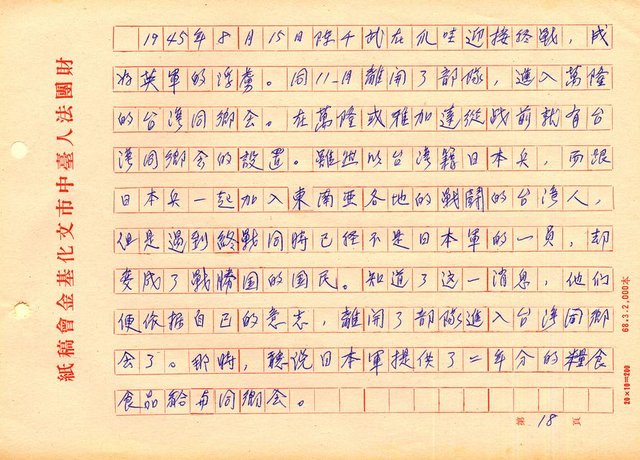 1945年8月15日陳千武在爪哇迎接終戰，成
為英軍的浮虜。同11月離開了部隊，進入萬隆
的台灣同鄉会。在萬隆或雅加達從战前就有台
湾同鄉会的設置。雖然以台湾籍日本兵，而跟
日本兵一起加入東南亜各地的戰鬪的台湾人，
但是遇到終戰同時已経不是日本軍的一員，却
変成了戰勝国的国民。知道了这一消息，他们
便依据自己的意志，離開了部隊進入台湾同鄉
会了。那時，聽说日本軍提供了二年分的糧食
食品給与同鄉会。
第18頁
財團法人臺中市文化基金會稿紙
68.3.2,000本
20×10=200